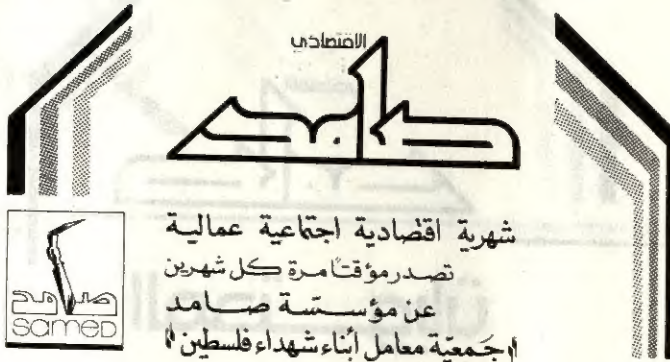 الاقتصادي
صامد
شهرية اقتصادية اجتماعية عمالية
تصدر مؤقتًا مرة كل شهرين
عن مؤسسة صامد
«جمعية معامل أبناء شهداء فلسطين»
صامد
SAMED